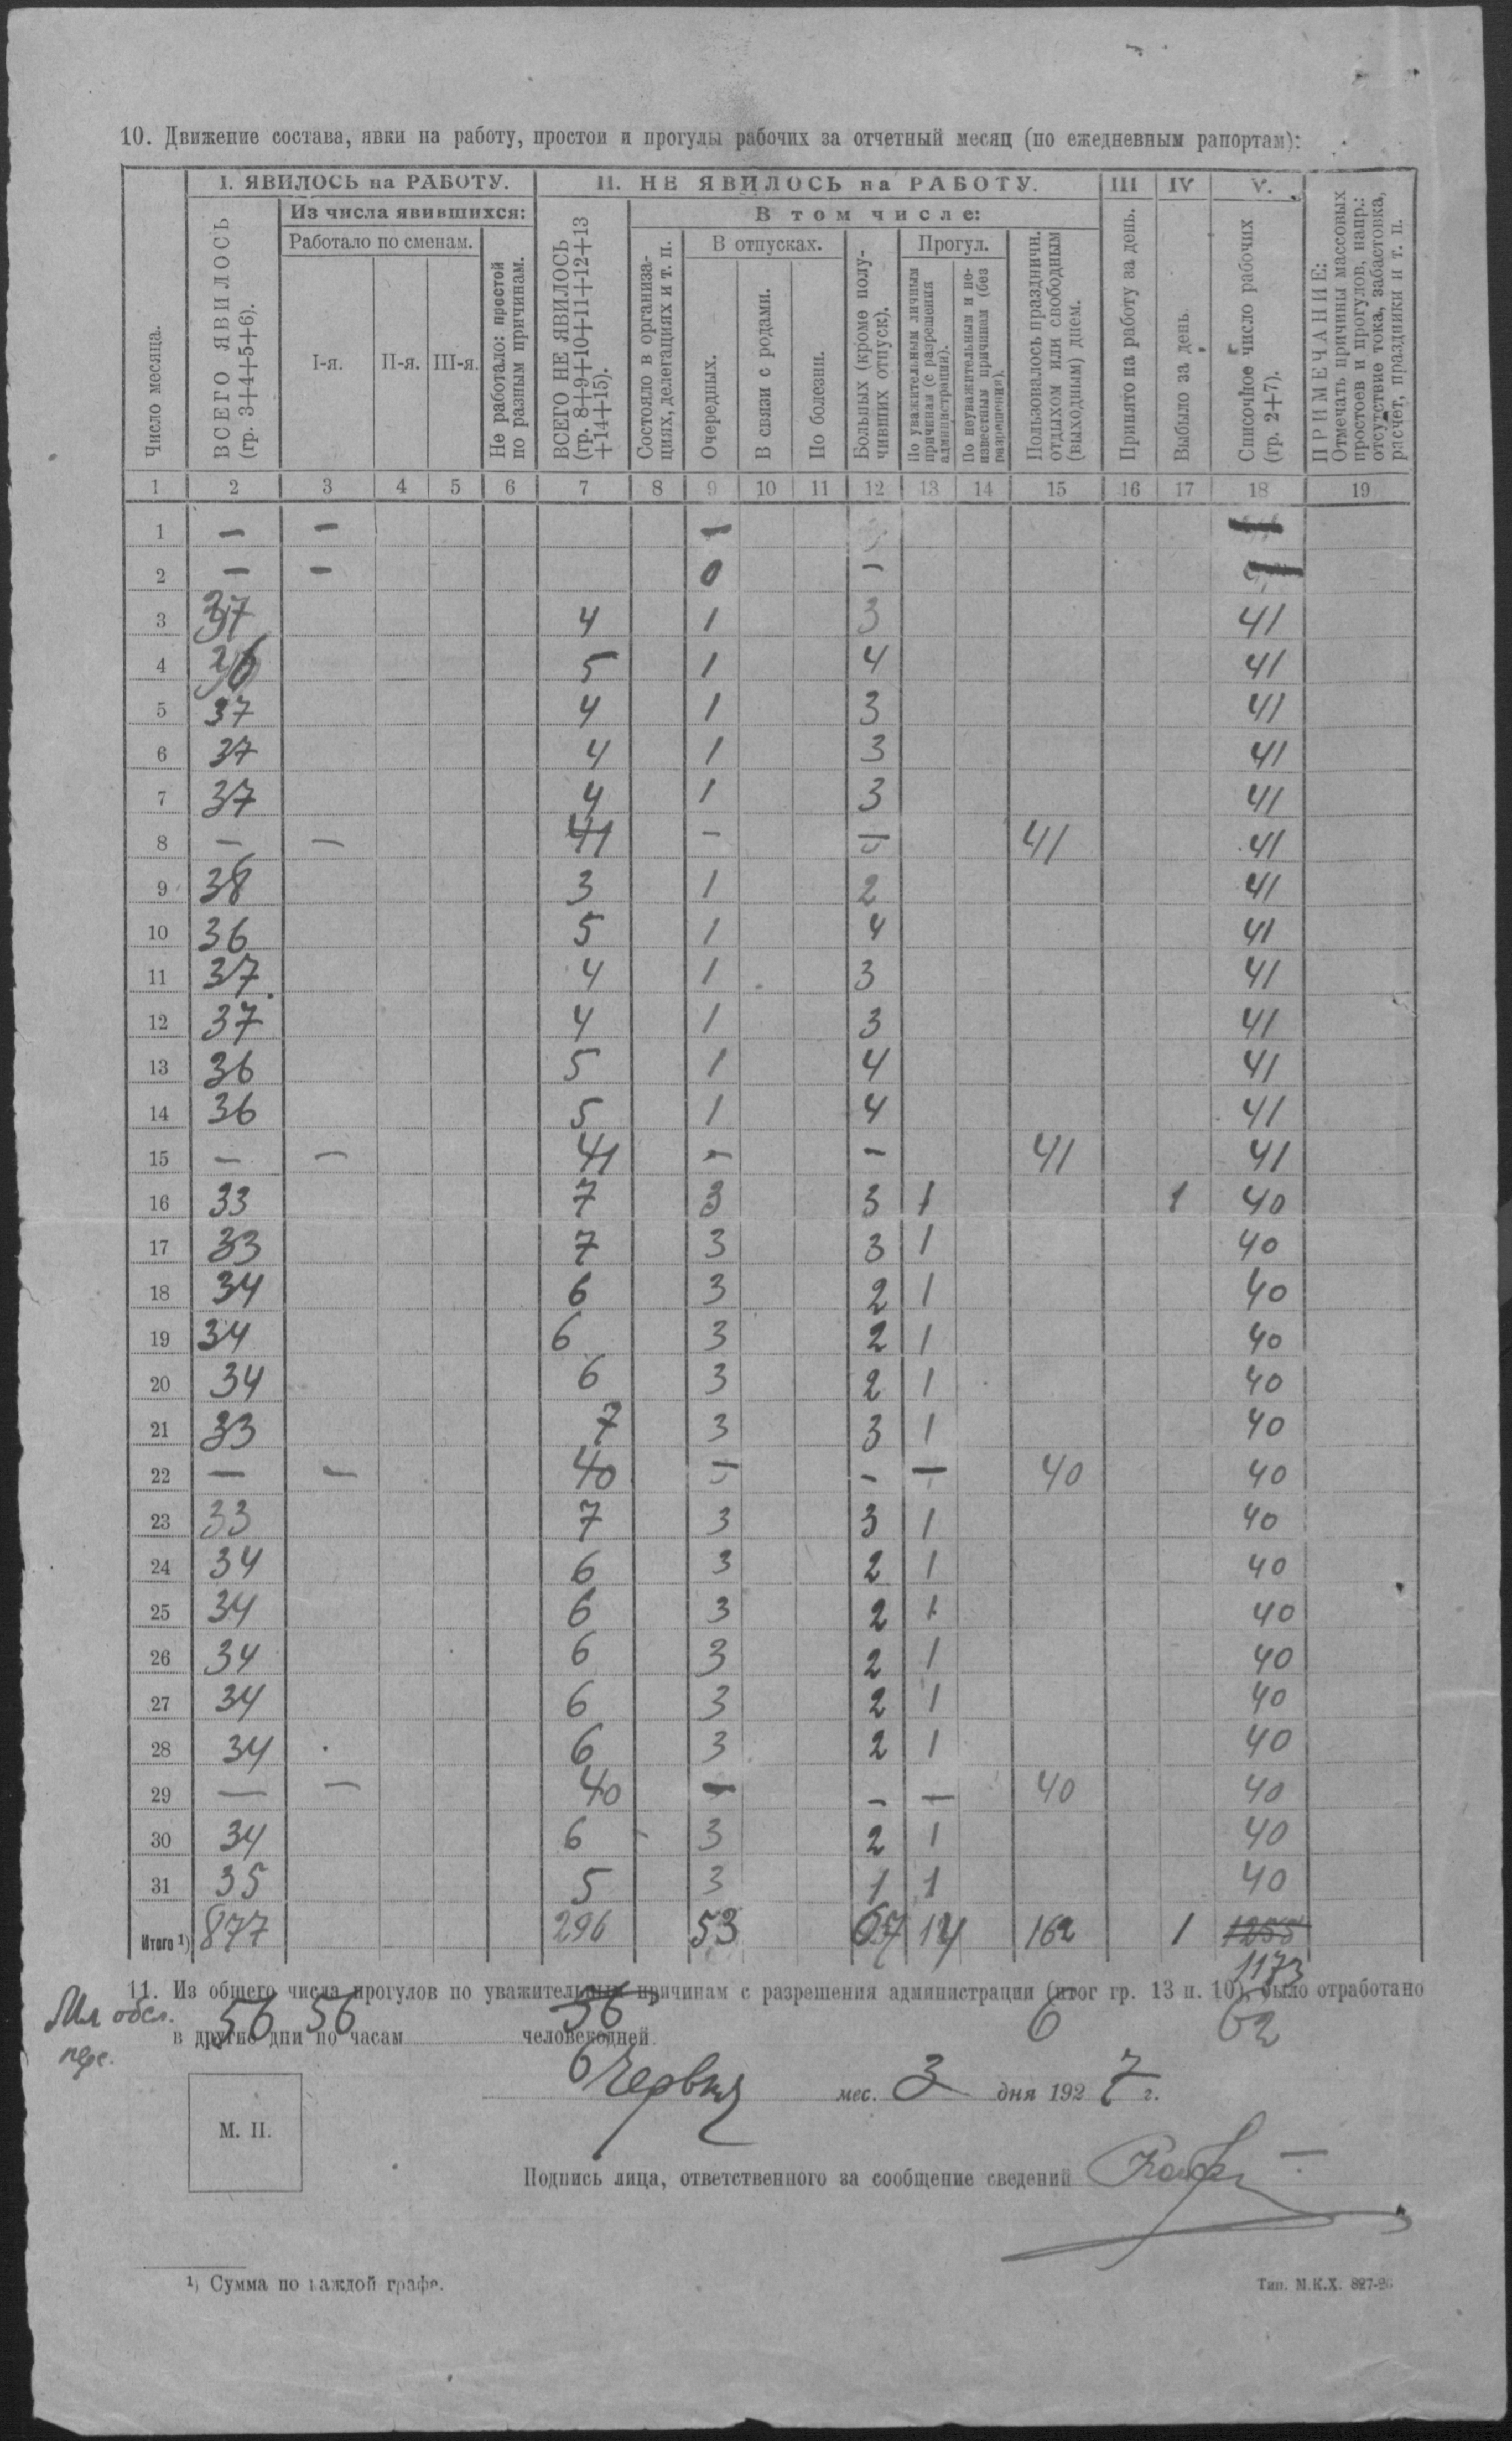 10. Движение состава, явки на работу, простои и прогулы рабочих за отчетный месяц (по ежедневным рапортам):
I. ЯВИЛОСЬ на РАБОТУ. II. НЕ ЯВИЛОСЬ на РАБОТУ. III IV V.
Число месяца.
ВСЕГО ЯВИЛОСЬ
(гр. 3+4+5+6).
Из числа явившихся:
Работало по сменам.
I-я. II-я. III-я.
Не работало: простой
по разным причинам.
ВСЕГО НЕ ЯВИЛОСЬ
(гр. 8+9+10+11+12+13
+14+15).
В том числе:
Состояло в организа-
циях, делегациях и т. п.
В отпусках.
Очередных.
В связи с родами.
По болезни.
Больных (кроме полу-
чивших отпуск).
Прогул.
По уважительным личным
причинам (с разрешения
администрации).
По неуважительным и не-
известным причинам (без
разрешения).
Пользовалось праздничн.
отдыхом или свободным
(выходным) днем.
Принято на работу за день.
Выбыло за день.
Списочное число рабочих
(гр. 2+7).
ПРИМЕЧАНИЕ:
Отмечать причины массовых
простоев и прогулов, напр.:
отсутствие тока, забастовка,
расчет, праздники и т. п.
1 2 3 4 5 6 7 8 9 10 11 12 13 14 15 16 17 18 19
1 — — —
2 — — 0 —
3 37 4 1 3 41
4 36 5 1 4 41
5 37 4 1 3 41
6 37 4 1 3 41
7 37 4 1 3 41
8 — — 41 — — 41 41
9 38 3 1 2 41
10 36 5 1 4 41
11 37 4 1 3 41
12 37 4 1 3 41
13 36 5 1 4 41
14 36 5 1 4 41
15 — — 41 — — 41 41
16 33 7 3 3 1 1 40
17 33 7 3 3 1 40
18 34 6 3 2 1 40
19 34 6 3 2 1 40
20 34 6 3 2 1 40
21 33 7 3 3 1 40
22 — — 40 — — — 40 40
23 33 7 3 3 1 40
24 34 6 3 2 1 40
25 34 6 3 2 1 40
26 34 6 3 2 1 40
27 34 6 3 2 1 40
28 34 6 3 2 1 40
29 — — 40 — — — 40 40
30 34 6 3 2 1 40
31 35 5 3 1 1 40
Итого ¹) 877 296 53 67 14 162 1 1255
1173
11. Из общего числа прогулов по уважительным причинам с разрешения администрации (итог гр. 13 п. 10), было отработано
в другие дни по часам человекодней
56 56 36 6 62
6 Червня мес. 3 дня 1927 г.
М. П.
Подпись лица, ответственного за сообщение сведений
¹) Сумма по каждой графе.
Тип. М.К.Х. 827-26